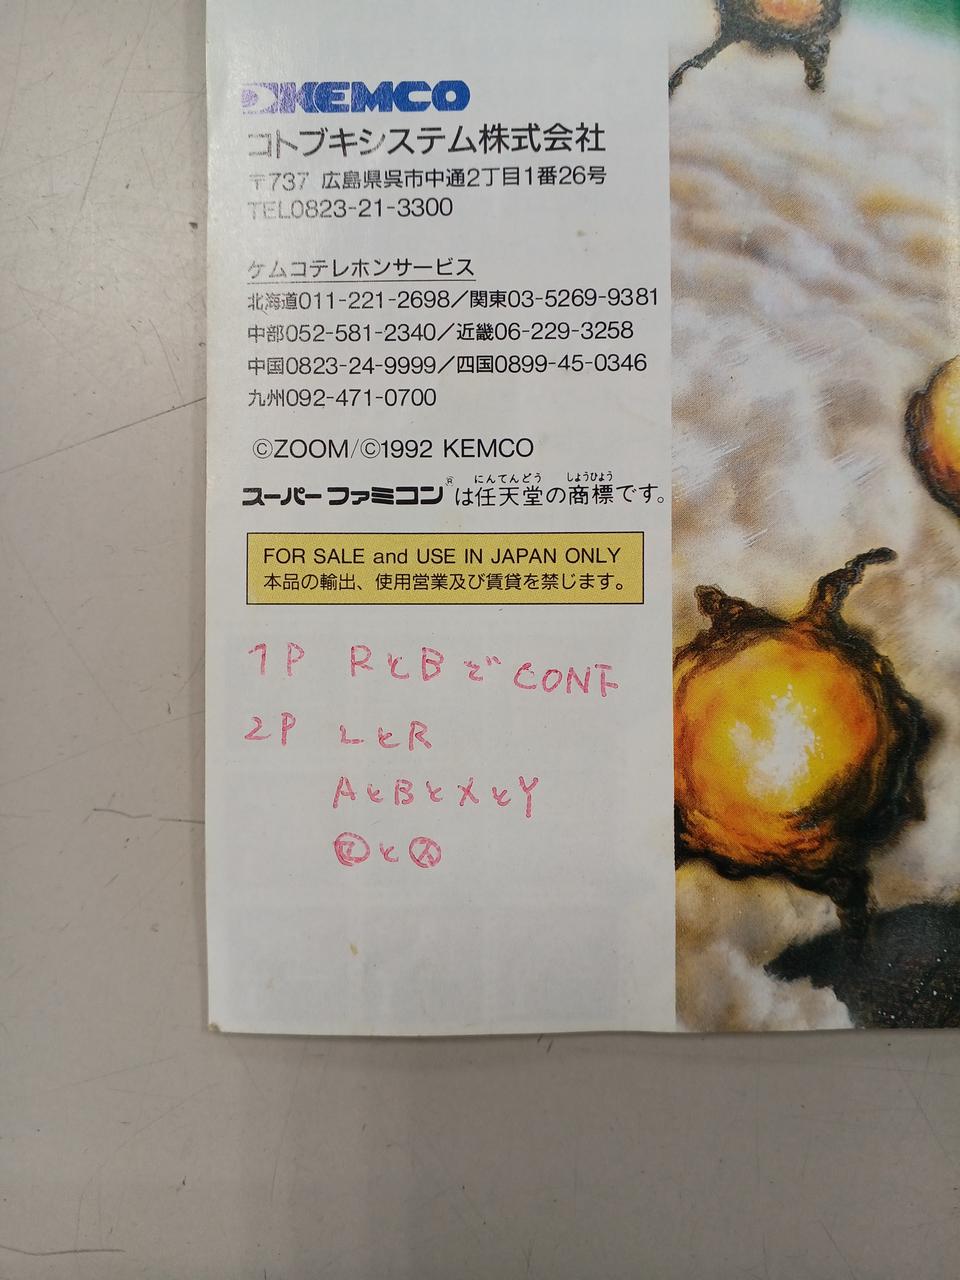 KEMCO
コトブキシステム株式会社
〒737 広島県呉市中通2丁目1番26号
TEL0823-21-3300
ケムコテレホンサービス
北海道011-221-2698／関東03-5269-9381
中部052-581-2340／近畿06-229-3258
中国0823-24-9999／四国0899-45-0346
九州092-471-0700
©ZOOM/©1992 KEMCO
にんてんどう しょうひょう
スーパーファミコン®は任天堂の商標です。
FOR SALE and USE IN JAPAN ONLY
本品の輸出、使用営業及び賃貸を禁じます。
1P RとBで CONF
2P LとR
AとBとXとY
と